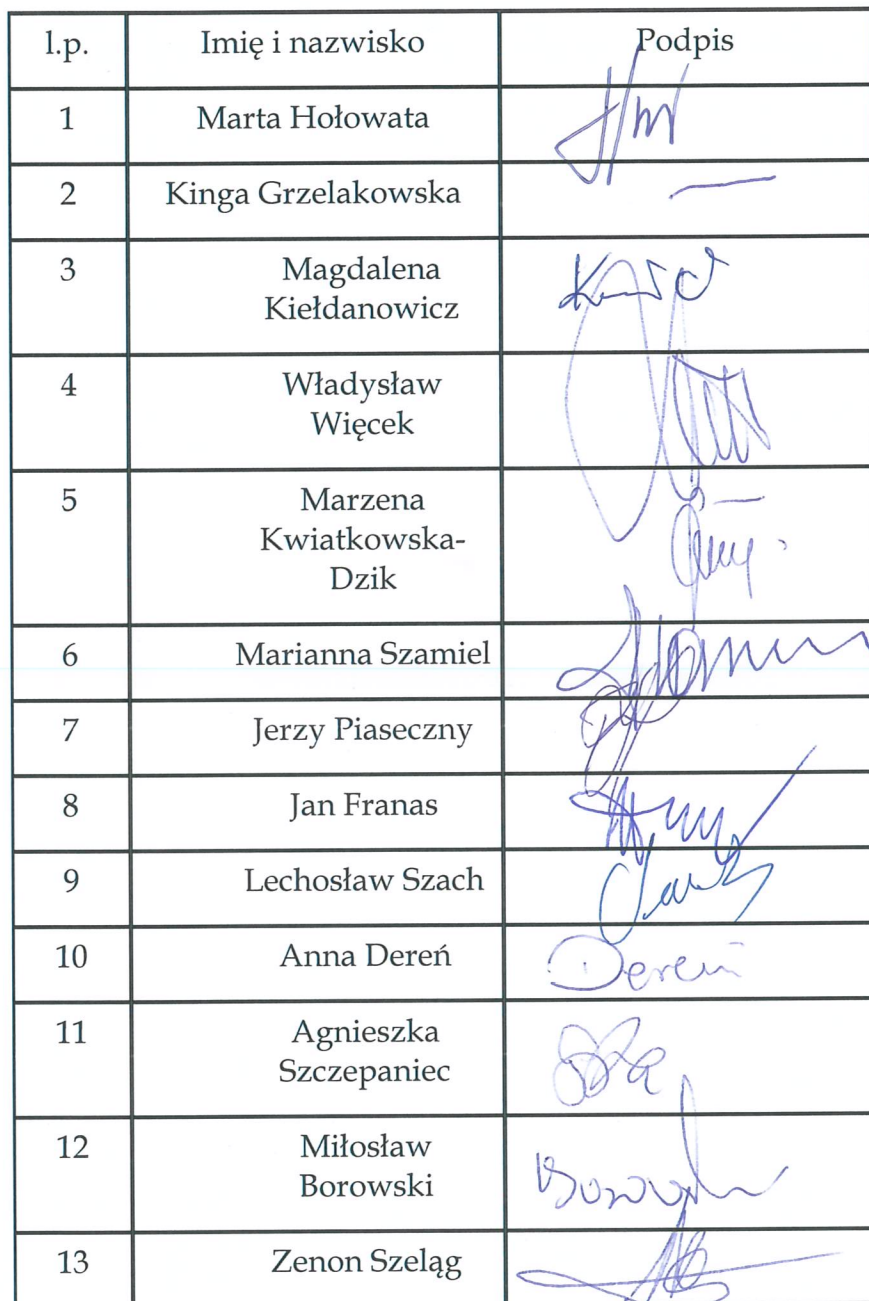 l.p. Imię i nazwisko Podpis
1 Marta Hołowata
2 Kinga Grzelakowska —
3 Magdalena
Kiełdanowicz
4 Władysław
Więcek
5 Marzena
Kwiatkowska-
Dzik
6 Marianna Szamiel
7 Jerzy Piaseczny
8 Jan Franas
9 Lechosław Szach
10 Anna Dereń Dereń
11 Agnieszka
Szczepaniec
12 Miłosław
Borowski
13 Zenon Szeląg